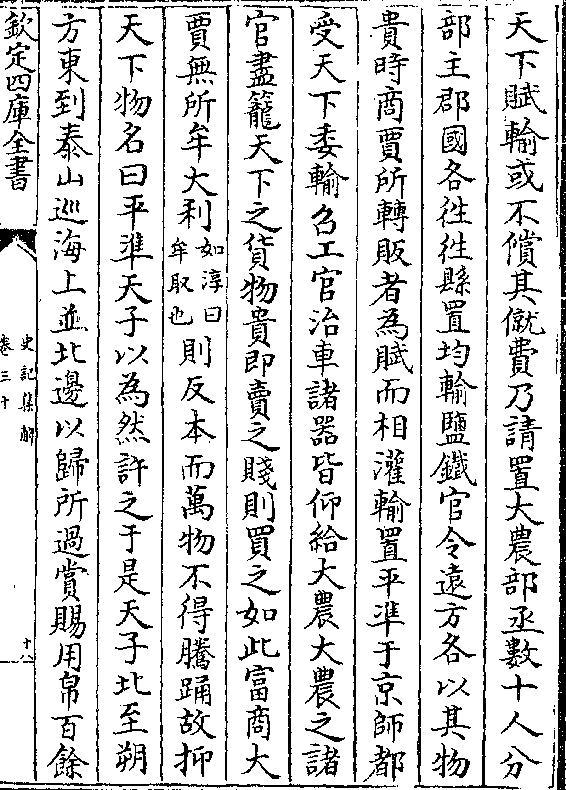 天下賦輸或不償其僦費乃請置大農部丞數十人分
部主郡國各徃徃縣置均輸鹽鐵官令遠方各以其物
貴時商賈所轉販者為賦而相灌輸置平凖于京師都
受天下委輸召工官治車諸器皆仰給大農大農之諸
官盡籠天下之貨物貴即賣之賤則買之如此富商大
賈無所牟大利如淳曰牟取也則反本而萬物不得騰踊故抑
天下物名曰平準天子以為然許之于是天子北至朔
方東到泰山巡海上並北邊以歸所過賞賜用帛百餘
欽定四庫全書
史記集解
卷三十
十八